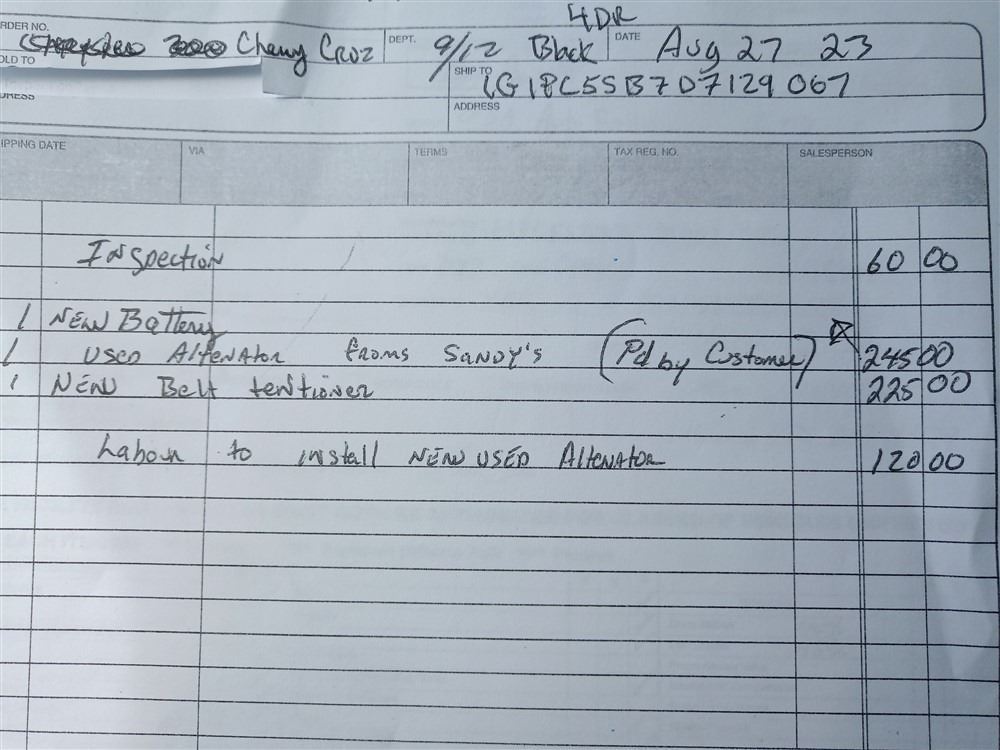 4DR
RDER NO. Chevy Cruz DEPT. 9/12 Black DATE Aug 27 23
OLD TO SHIP TO 1G1PC5SB7D7129067
DRESS ADDRESS
IPPING DATE VIA TERMS TAX REG. NO. SALESPERSON
Inspection 60 00
1 New Battery
1 used Altenator froms Sandy's (Pd by Customer) 245 00
1 New Belt tentioner 225 00
Labour to install New used Altenator 120 00